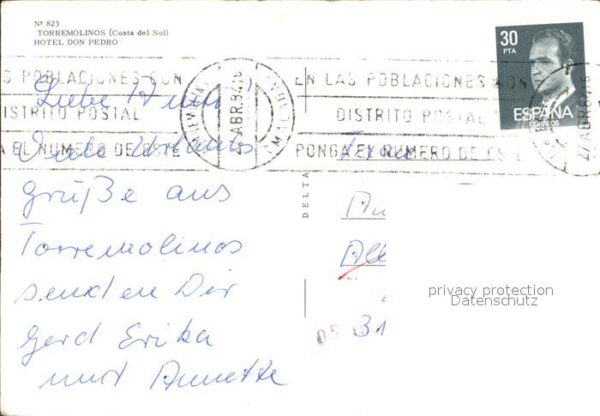 Nº 823
TORREMOLINOS (Costa del Sol)
HOTEL DON PEDRO
30
PTA
ESPAÑA
EN LAS POBLACIONES CON
DISTRITO POSTAL
PONGA EL NUMERO DE ESTE
S POBLACIONES CON
DISTRITO POSTAL
A EL NUMERO DE ESTE
ABR.84
MALAGA
27 ABR.84
Liebe
Viele Urlaubs
grüße aus
Torremolinos
senden Dir
Gerd Erika
und Annette
DELTA
An
All
31
05
privacy protection
Datenschutz